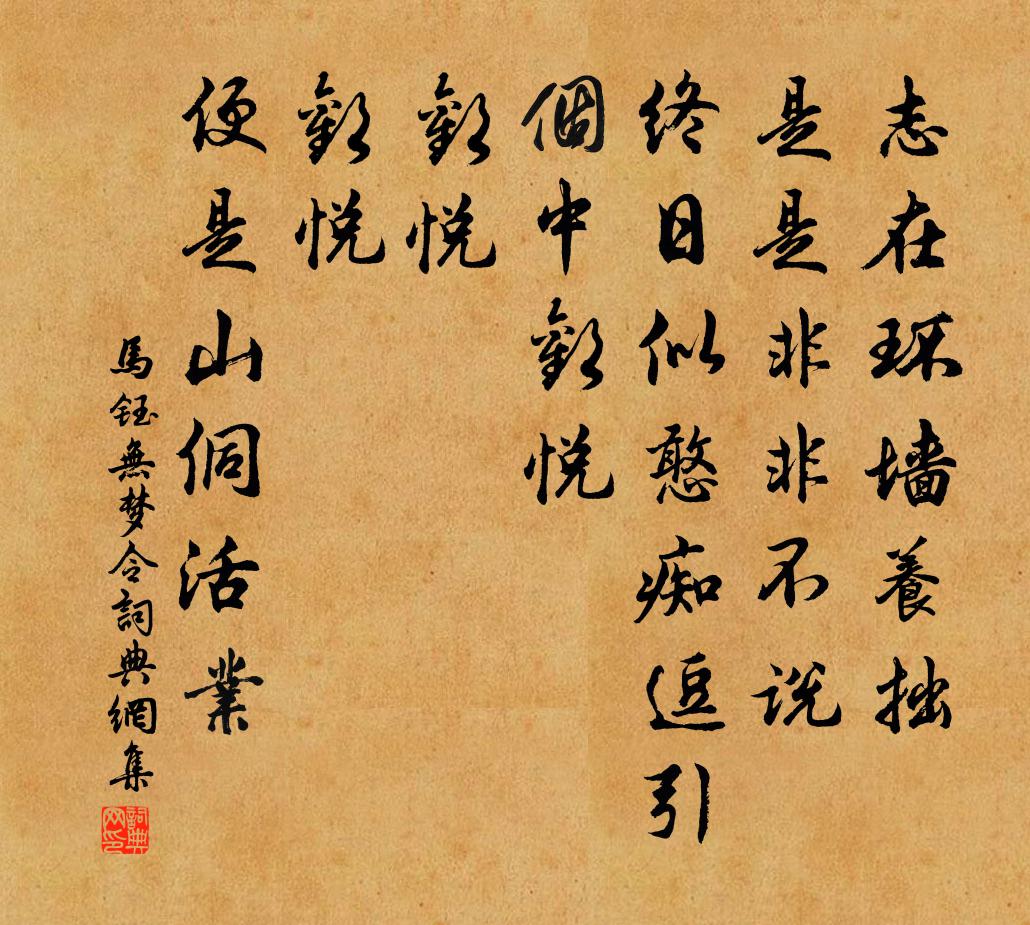 志在环墙養拙
是是非非不说
終日似憨痴逗引
個中歡悦
歡悦
歡悦
便是山侗活業
馬鈺無梦令詞典網集
詞典网印